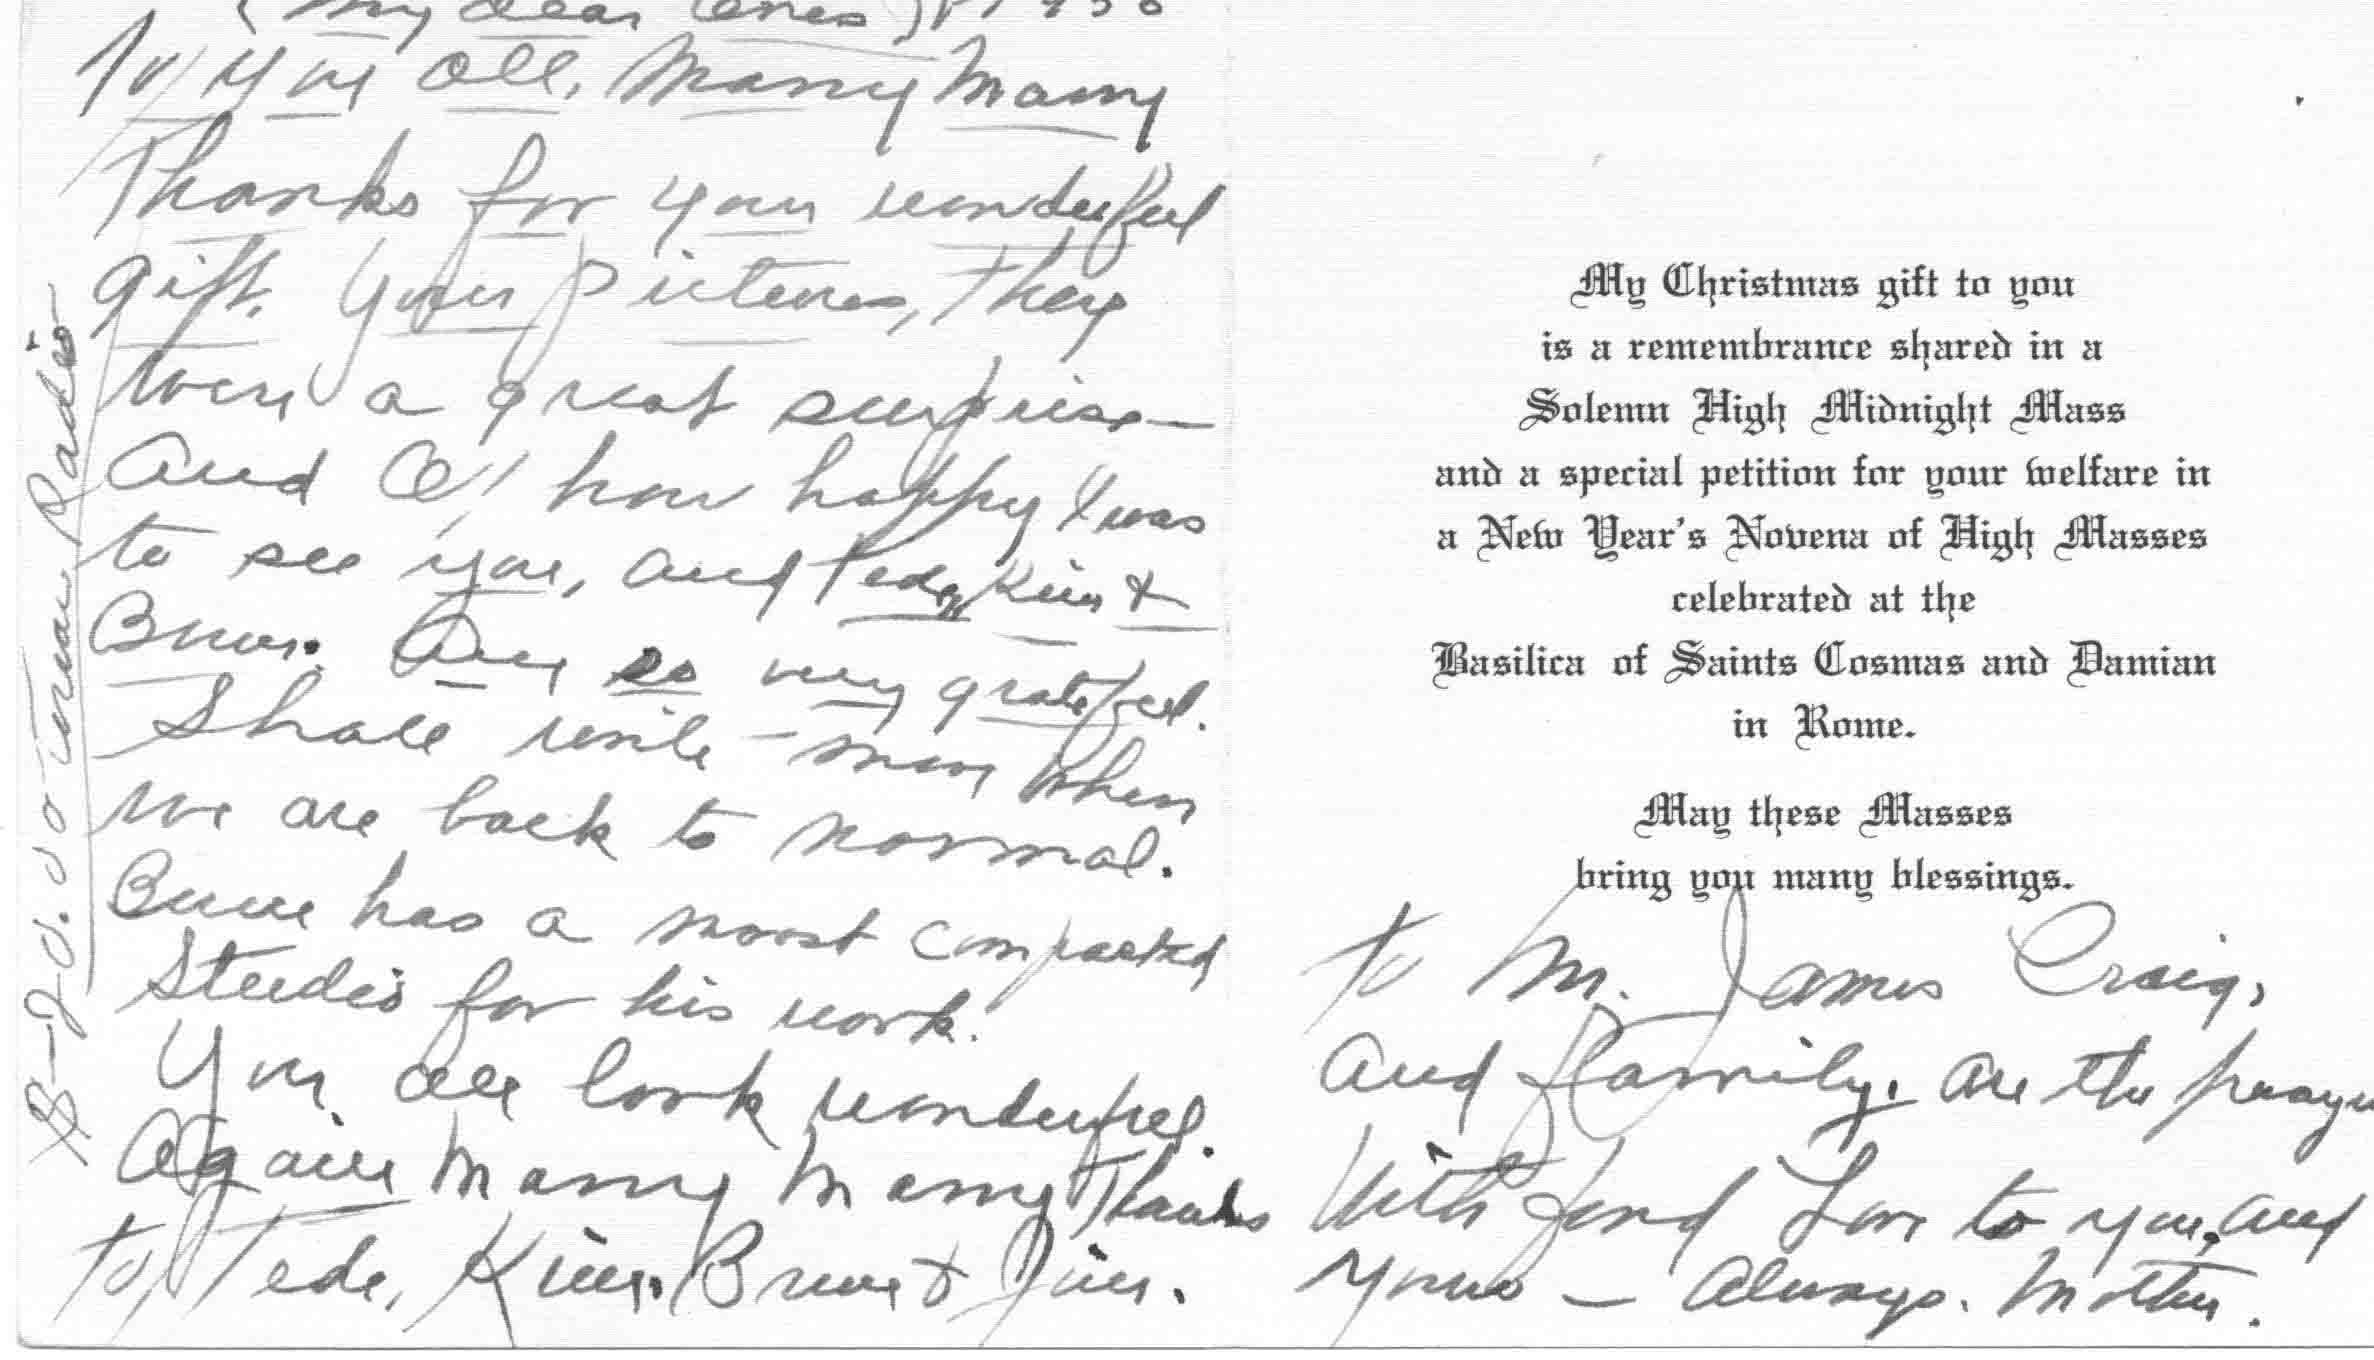 (My dear Ones)
To you all, Many Many
Thanks for your wonderful
gift. Your Pictures, They
were a great surprise—
And O! how happy I was
to see you, and Tede, Kim &
Bruce. Am so very grateful.
Shall write – more when
we are back to normal.
Bruce has a most compacted
Studio for his work.
You all look wonderful.
Again Many Many Thanks
to, Tede, Kim. Bruce & Jim.
My Christmas gift to you
is a remembrance shared in a
Solemn High Midnight Mass
and a special petition for your welfare in
a New Year's Novena of High Masses
celebrated at the
Basilica of Saints Cosmas and Damian
in Rome.
May these Masses
bring you many blessings.
To Mr. James Craig,
and Family. are the
With fond Love to you, and
yours — Always. Mother.
Radio